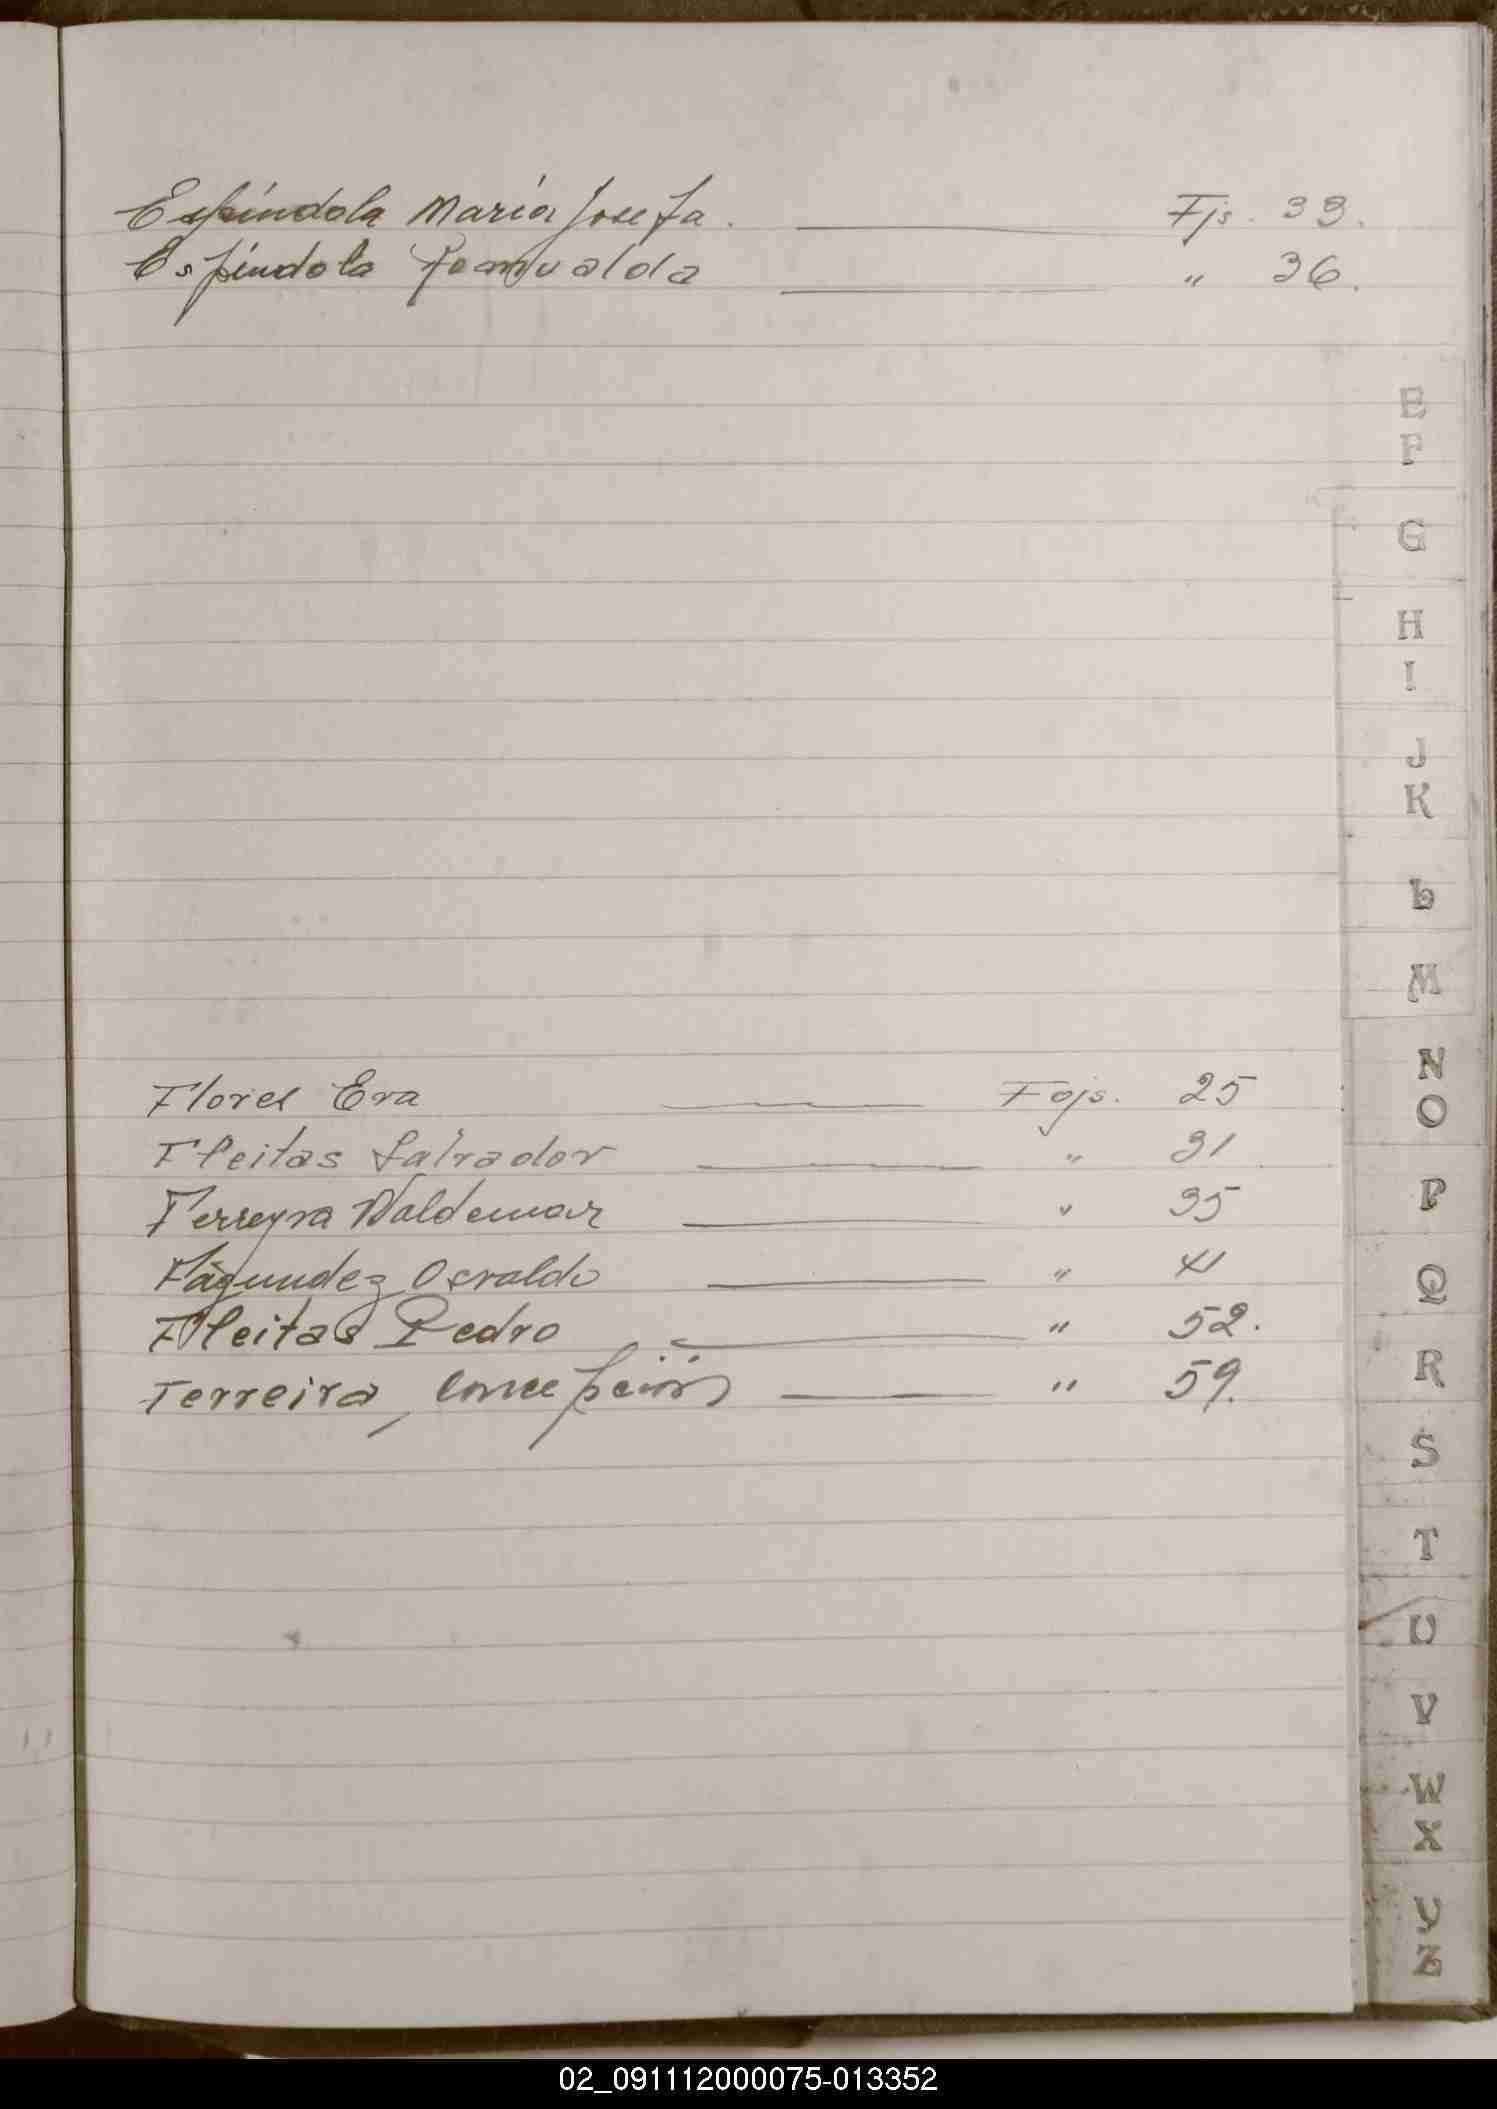 Espíndola María Josefa. Fjs. 33.
Espíndola Romualda " 36.
E
F
G
H
I
J
K
L
M
Flores Eva Fojs. 25
N
O
Fleitas Salvador " 31
Ferreyra Waldemar " 35
P
Fagundez Osvaldo " 41
Q
Fleitas Pedro " 52.
Ferreira, Concepción " 59.
R
S
T
U
V
W
X
Y
Z
02_091112000075-013352